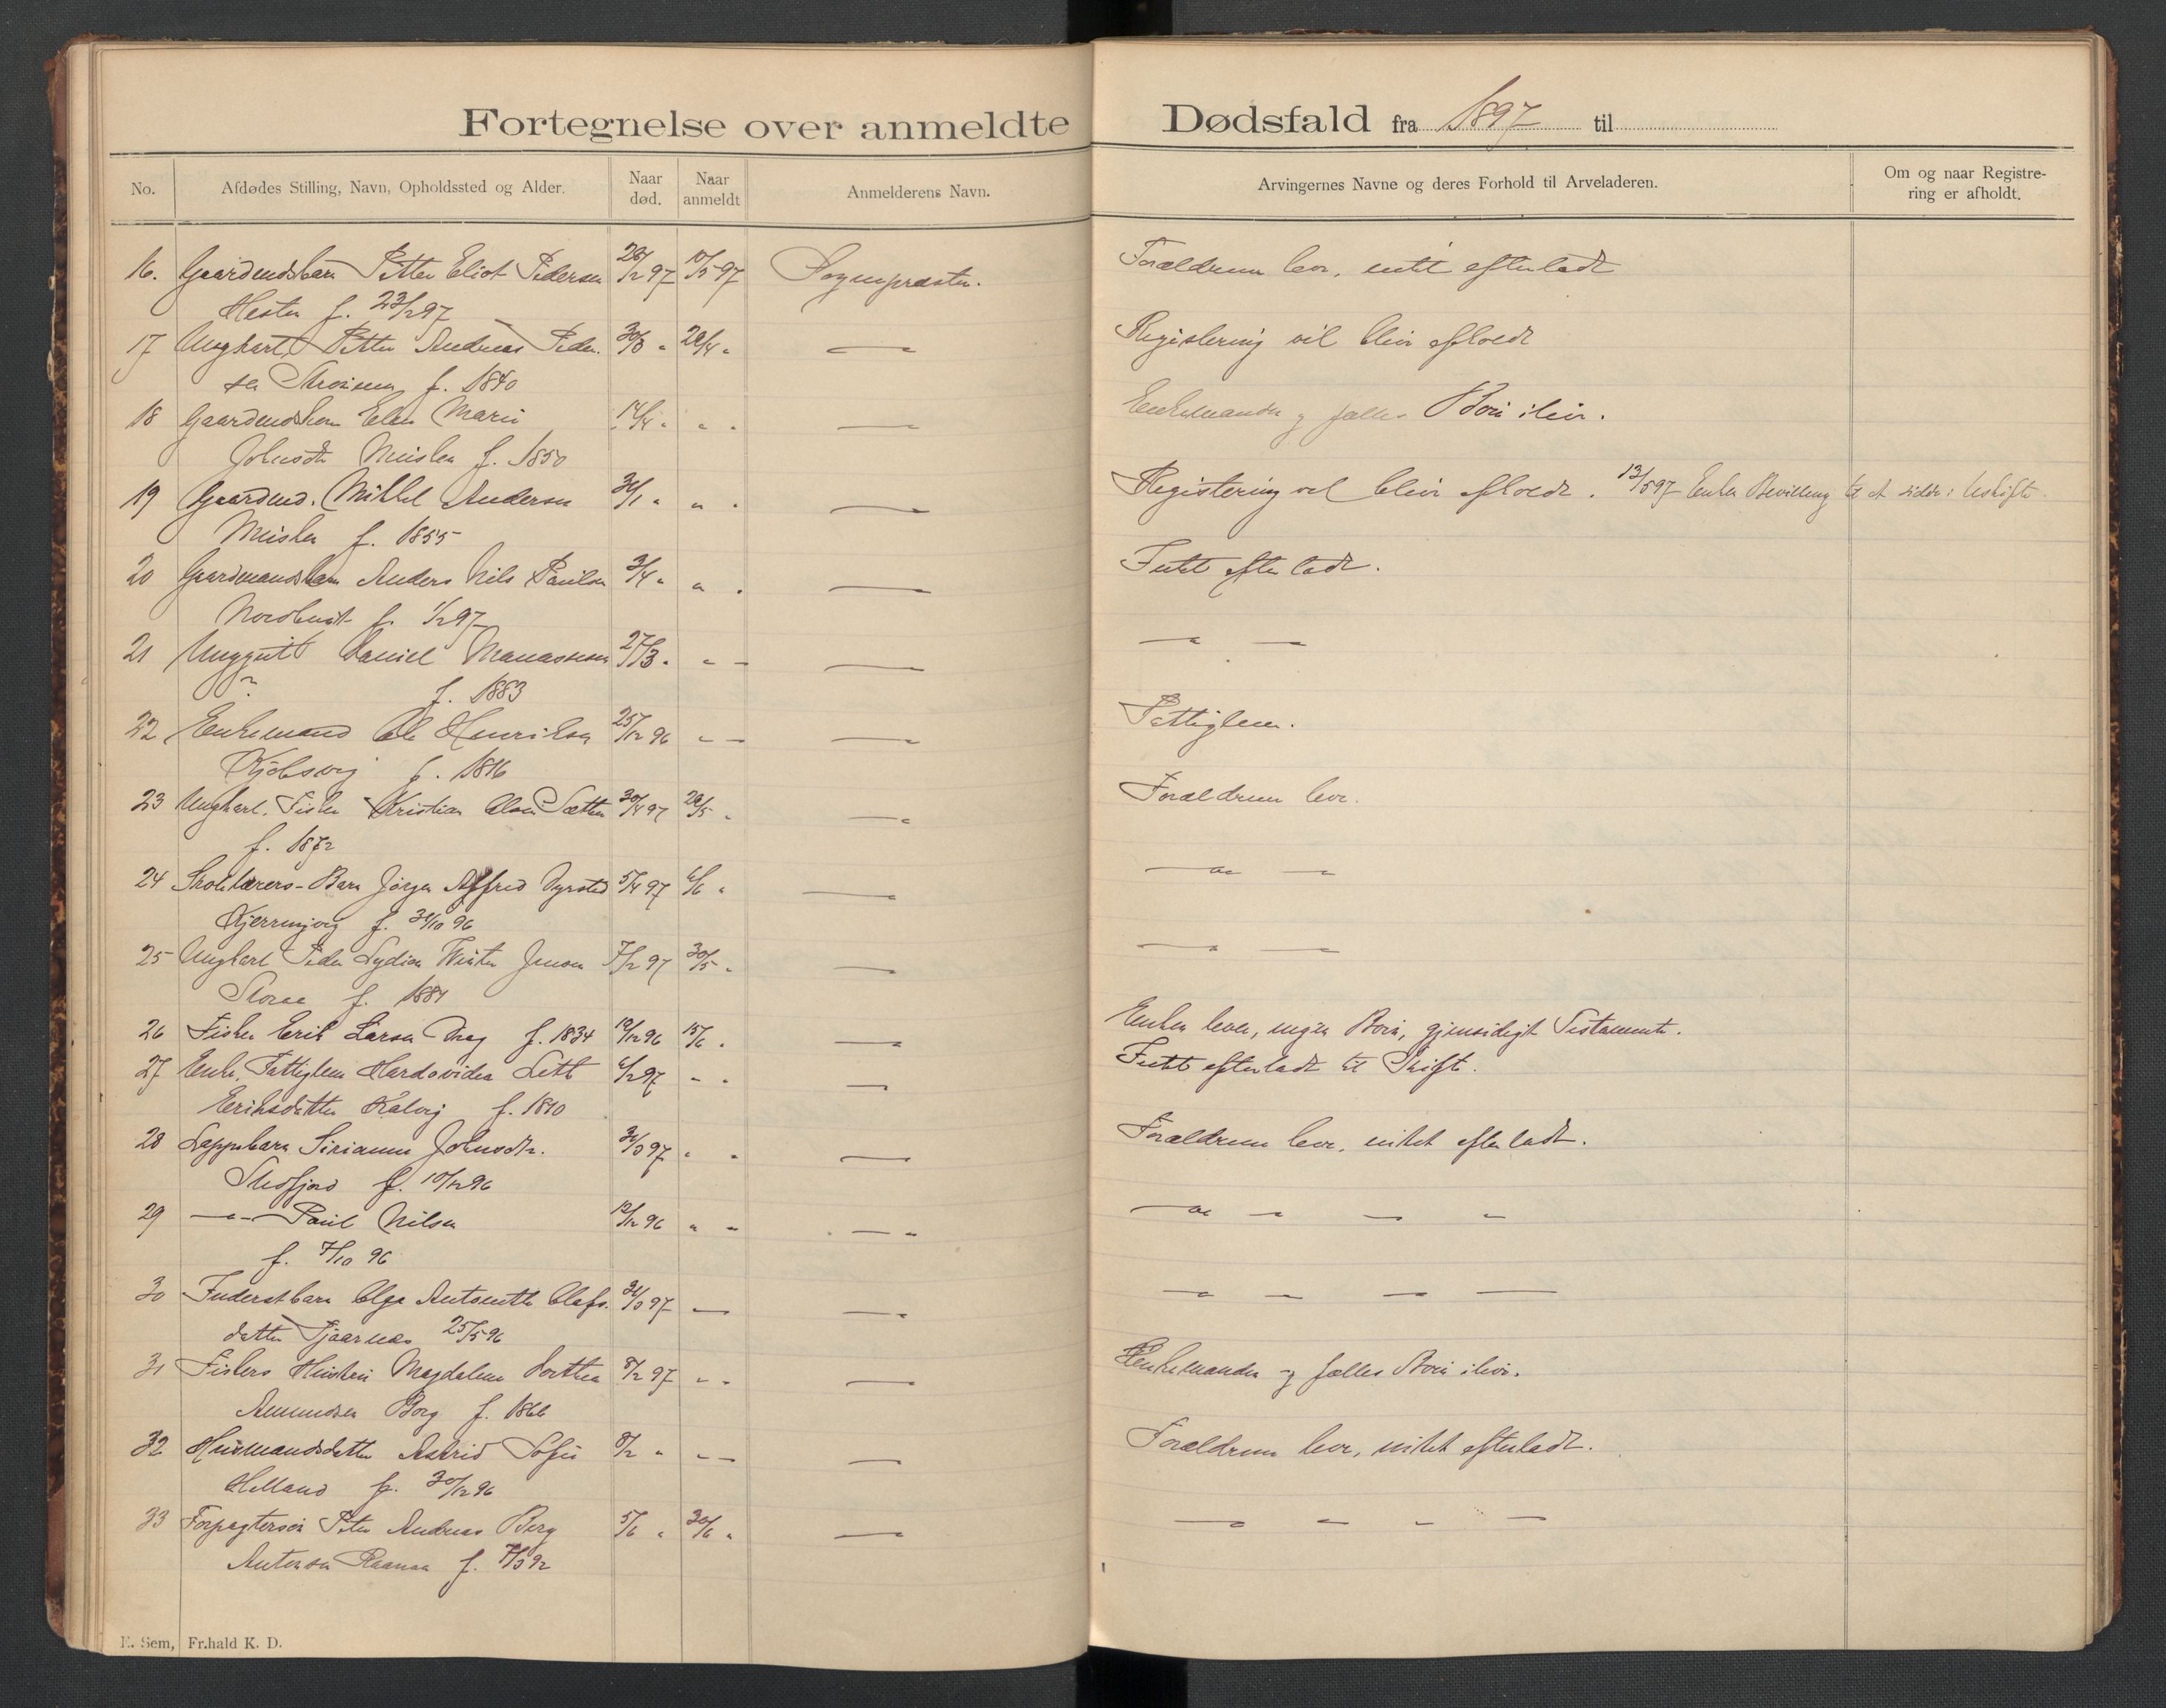 Fortegnelse over anmeldte Dødsfald fra 1897 til
No. Afdødes Stilling, Navn, Opholdssted og Alder. Naar død. Naar anmeldt Anmelderens Navn. Arvingernes Navne og deres Forhold til Arveladeren. Om og naar Registrering er afholdt.
16. Gaardmdsbarn Petter Eliot Pedersen 28/2 97 10/5 97 Sognepræsten. Forældrene lever, intet efterladt
f. 23/2 97
17 Ungkarl Petter Andreas Peder- 30/3 " 28/4 " — Registering vil blive afholdt
sen f. 1840
18 Gaardmdskone Elen Marie 14/4 " " " — Enkemanden og fælles Børn ilive.
Johnsdtr f. 1850
19 Gaardmd. Mikkel Andersen " " — Registering vil blive afholdt. 13/5 97 Enken Bevilling til at sidde i Uskifte.
f. 1855
20 Gaardmandsbarn Anders Nils Paulsen 3/4 " " " — Intet efterladt.
f. 1/2 97
21 Unggut Daniel Manassesen 27/3 " " — — " —
? f. 1883
22 Enkemand Ole Henriksen 25/12 96 " — — Fattiglem.
Kjøbsvig f. 1816
23 Ungkarl. Fisker Kristian Olsen Sætter 30/4 97 28/5 " — Forældrene lever.
f. 1872
24 Skolelærers-Barn Jørgen Alfred Dyrsted 5/4 97 6/6 " — — " —
Kjerringvig f. 96
25 Ungkarl Peder Lydian Winter Jensen 7/2 97 30/5 " — — " —
Storaa f. 1884
26 Fisker Erik Larsen Drag f. 1834 19/12 96 15/6 " — Enken lever, ingen Børn, gjensidigt Testamente.
27 Enke, Fattiglem 6/2 97 " " — Intet efterladt til Skifte.
Eriksdatter Kalvig f. 1810
28 Lappebarn Sirianna Johnsdtr. 31/3 97 " " — Forældrene lever, intet efterladt.
f. 10/12 96
29 — " — Paul Nilsen 12/12 96 " " — " — " — — "
f. 7/10 96
30 Inderstbarn Olga Olafs- 31/3 97 — — — — — —
datter Tjaarnæs 25/5 96
31 Fiskers Hustru Magdalena Dorthea 8/2 97 " " — Enkemanden og fælles Børn ilive.
Amundsen Borg f. 1866
32 Husmandsdatter Astrid Sofie 8/2 " " — — Forældrene lever, intet efterladt.
Helland f. 30/12 96
33 Forpagtersøn Peter Andreas Berg 5/6 " 30/6 " — — — — —
Antonsen f. 7/3 92
E. Sem, Fr.hald K. D.